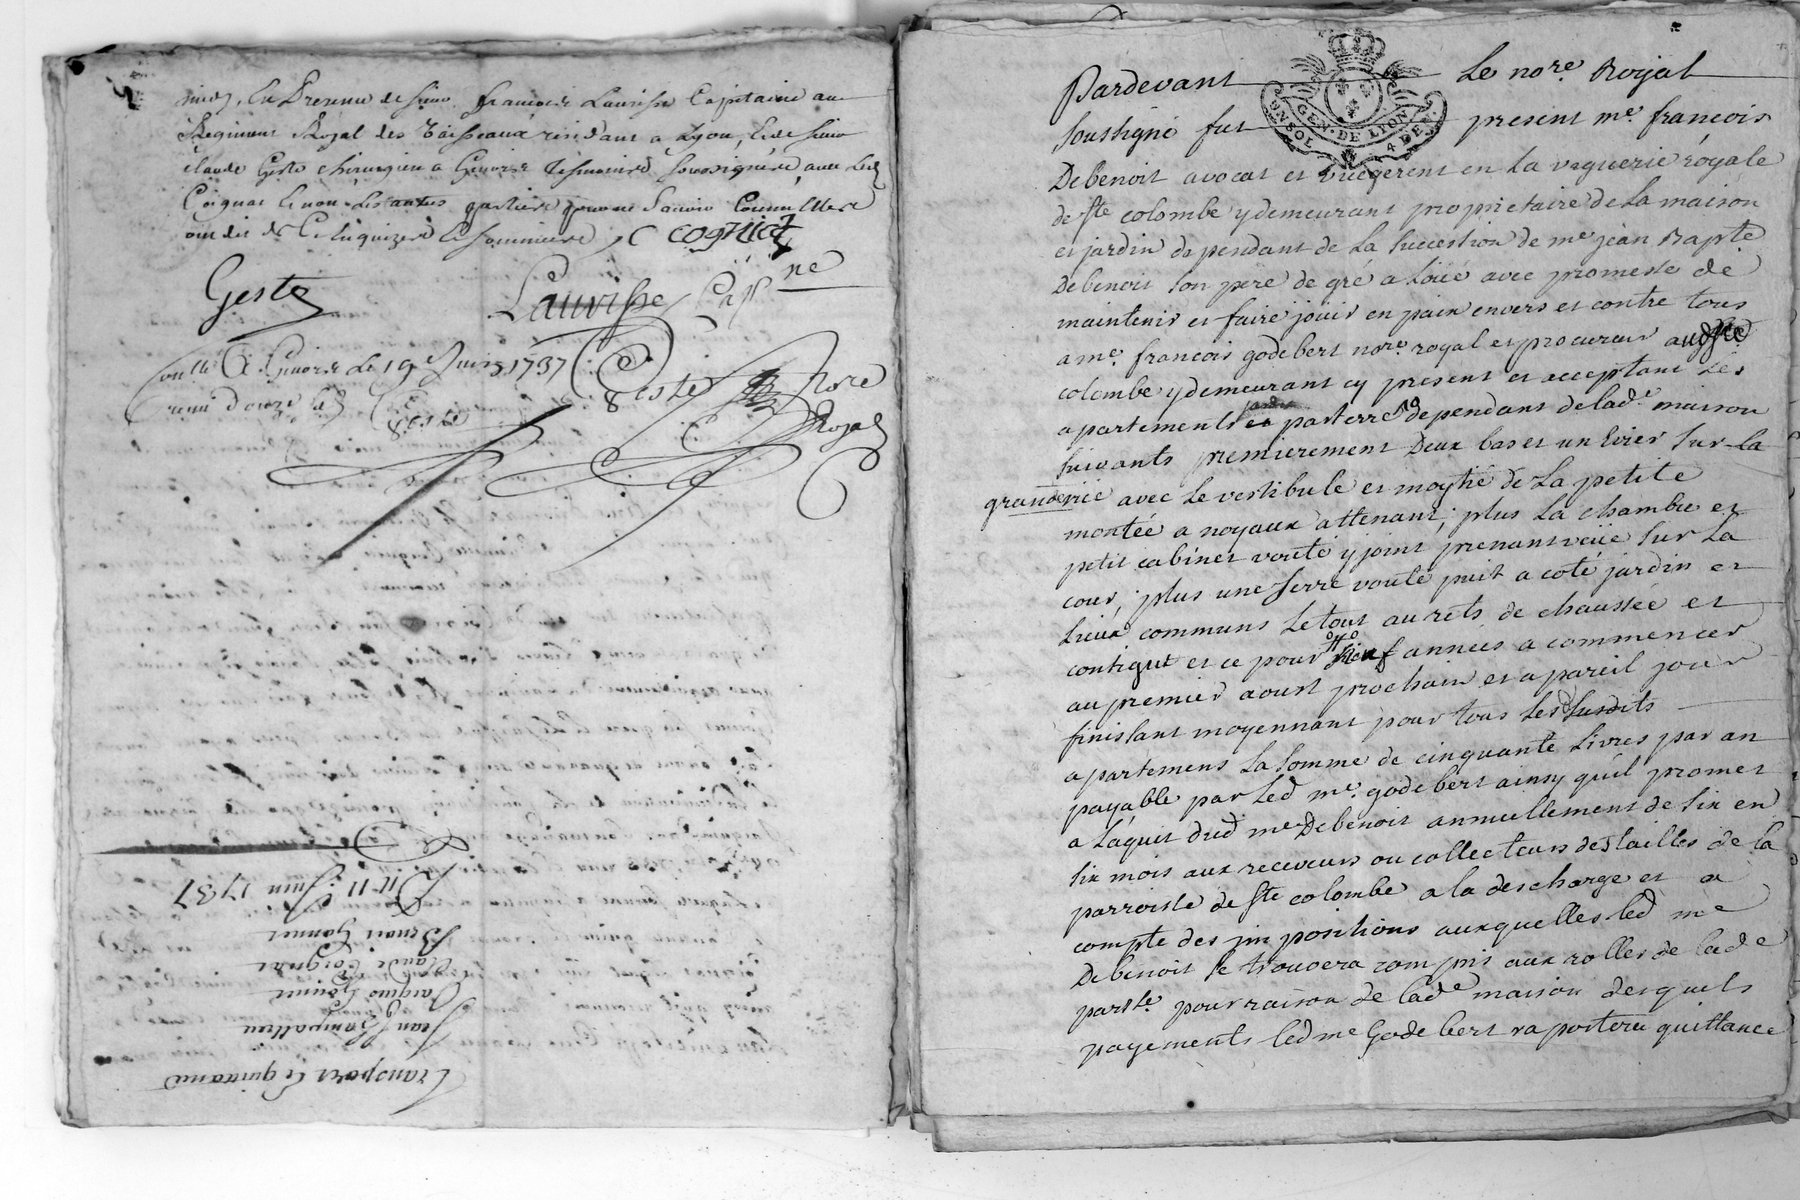 midy, En Presence de sieur françois Laurisse Capitaine au
Regiment Royal des Vaisseaux residant a Lyon, & de sieur
claude Geste chirurgien a Givors Tesmoins soussignés avec led
Coignat & non les autres parties pour ne Sçavoir
ont dit de ce Enquis & sommés
cognat
Geste Laurisse Cap.ne
Conllé A Givors Le 19e Juin 1737
receu douze s. Geste
Geste Nore Royal
Du 11 Juin 1737
Benoit
Claude Coignat
Jacques
Jean
Transport & quittance
GEN. DE LYON
Pardevant Le nore. Royal
soussigné fut present me françois
Debenoit avocat et vicegerent en La viguerie royale
de ste colombe y demeurant proprietaire de La maison
et jardin dependant de La succession de me jean Bapte
Debenoit son pere de gré a Loüé avec promesse de
maintenir et faire jouir en paix envers et contre tous
a me. francois godebert nore. royal et procureur audt ste
colombe y demeurant cy present et acceptant Les
apartements et parterre dependans de lade. maison
suivants premierement Deux bas et un Evier sur La
grande rüe avec Le vestibule et moytié de La petite
montée a noyaux attenant; plus La chambre et
petit cabinet vouté y joint prenant veüe sur La
cour; plus une serre voute puit a coté jardin et
Lieux communs Le tout au rets de chaussée et
contigut et ce pour neuf années a commencer
au premier aoust prochain et a pareil jour
finissant moyennant pour tous Les susdits
apartemens La somme de cinquante Livres par an
payable par Led me. godebert ainsy qu'il promet
a L'aquit dud me Debenoit annuellement de six en
six mois aux receveurs ou collecteurs des tailles de la
parroisse de ste colombe a la descharge et a
compte des impositions auxquelles led me
Debenoit se trouvera compris aux rolles de lade
parsse. pour raison de lade maison desquels
payements led me Godebert raportera quittance